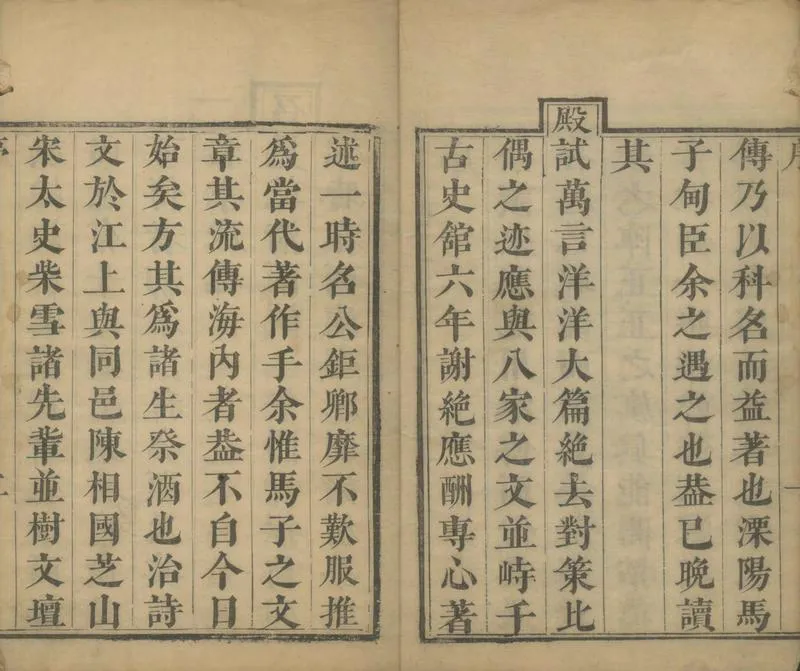 傳乃以科名而益著也溧陽馬
子甸臣余之遇之也葢已晚讀
其
殿試萬言洋洋大篇絶去對策比
偶之迹應與八家之文並峙千
古史舘六年謝絶應酬專心著
述一時名公鉅卿靡不歎服推
為當代著作手余惟馬子之文
章其流傳海內者葢不自今日
始矣方其為諸生祭酒也治詩
文於江上與同邑陳相國芝山
宋太史柴雪諸先軰並樹文壇